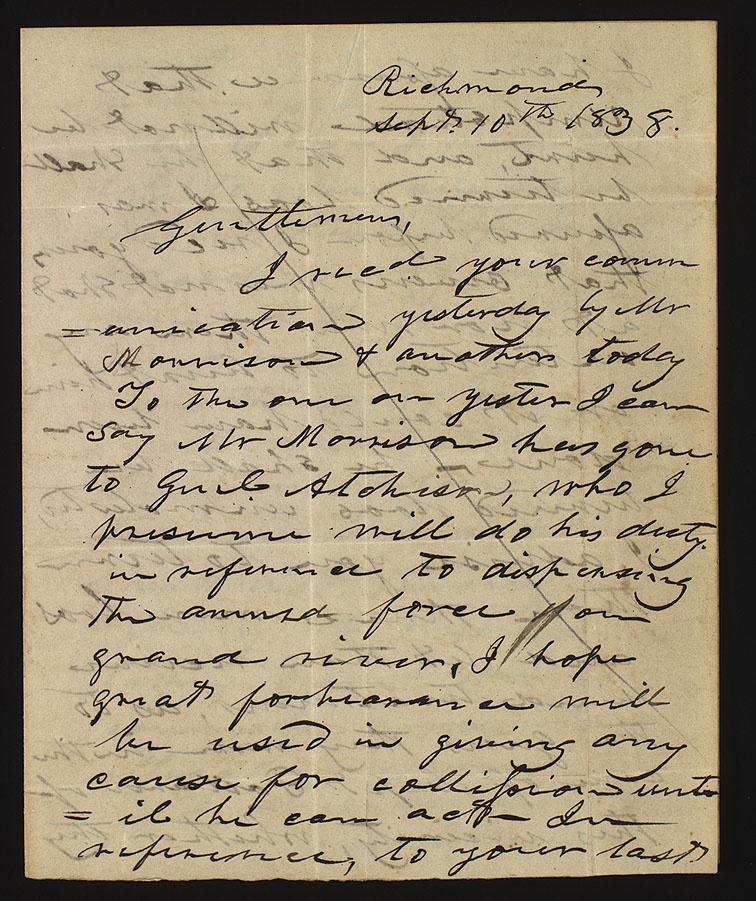 Richmond
Sept. 10th 1838.
Gentlemen,
I recd your comm
=unication yesterday by Mr
Morrison & another today
To the one on yester I can
say Mr Morrison has gone
to Genl Atchison, who I
presume will do his duty
in reference to dispersing
the armed force on
grand river, I hope
great forbearance will
be used in giving any
cause for collission unt
=il he can act— In
reference, to your last